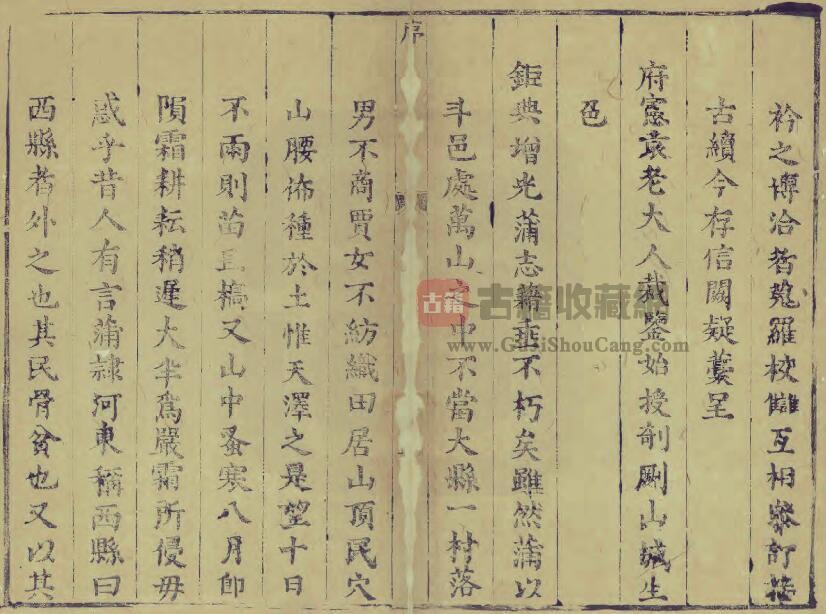 衿之博洽者蒐羅校讎互相叅訂
古續今存信闕疑藁呈
府憲袁老大人裁鑒始授剞劂山城生
色
鉅典增光蒲志籍垂不朽矣雖然蒲以
斗邑處萬山之中不當大縣一村落
序
男不商賈女不紡織田居山頂民穴
山腰佈種於土惟天澤之是望十日
不雨則苗立槁又山中蚤寒八月即
隕霜耕耘稍遲大半爲嚴霜所侵毋
惑乎昔人有言蒲隷河東稱西縣曰
西縣者外之也其民骨貧也又以其
古籍
古籍收藏
www.GujiShouCang.com